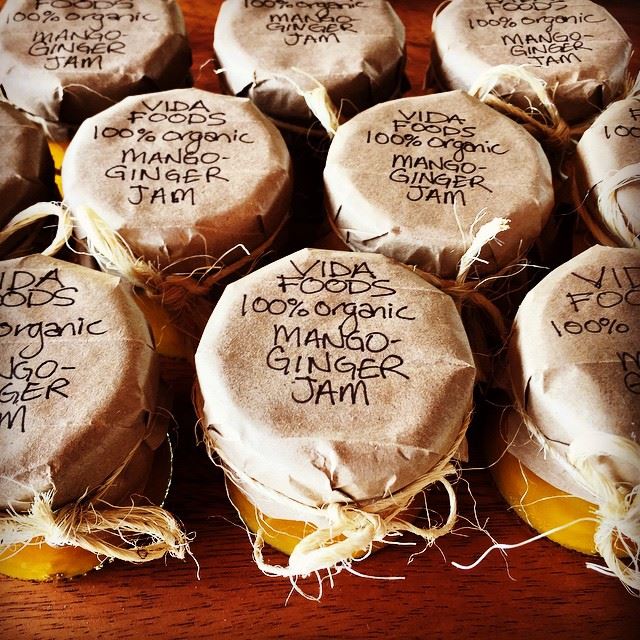 FOODS
100% Organic
MANGO-
GINGER
JAM
100% Organic
MANGO-
GINGER
JAM
FOODS
100% Organic
MANGO-
GINGER
JAM
VIDA
FOODS
100% Organic
MANGO-
GINGER
JAM
VIDA
FOODS
100% Organic
MANGO-
GINGER
JAM
VIDA
FOODS
100% Organic
MANGO-
GINGER
JAM
VIDA
FOODS
100% Organic
MANGO-
GINGER
JAM
VID
FOO
100%